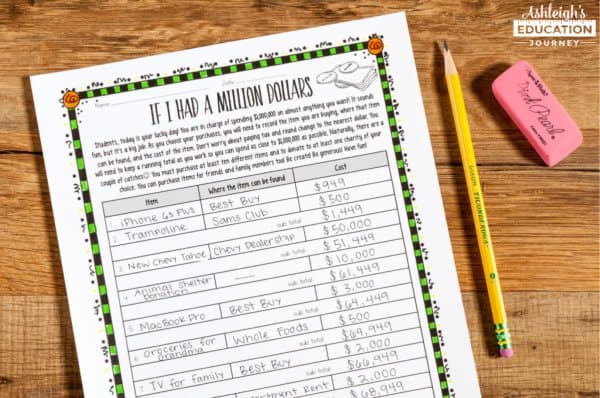 Ashleigh's
EDUCATION
JOURNEY
Name Date
IF I HAD A MILLION DOLLARS
Students, today is your lucky day! You are in charge of spending $1,000,000 on almost anything you want! It sounds
fun, but it's a big job. As you choose your purchases, you will need to record the item you are buying, where that item
can be found, and the cost of the item. Don't worry about paying tax and round change to the nearest dollar. You
will need to keep a running total as you work so you can spend as close to $1,000,000 as possible. Naturally, there are a
couple of catches☺ You must purchase at least ten different items and to donate to at least one charity of your
choice. You can purchase items for friends and family members too! Be creative! Be generous! Have fun!
Item Where the item can be found Cost
iPhone 6s Plus Best Buy $949
2 Trampoline Sams Club $500
sub total $1,449
3 New Chevy Tahoe Chevy Dealership $50,000
sub total $51,449
4 Animal Shelter Donation $10,000
sub total $61,449
5 MacBook Pro Best Buy $3,000
sub total $64,449
6 Groceries for Grandma Whole Foods $500
sub total $64,949
7 TV for family Best Buy $2,000
sub total $66,949
Apartment Rent $2,000
$68,949
Pink Pearl
TICONDEROGA